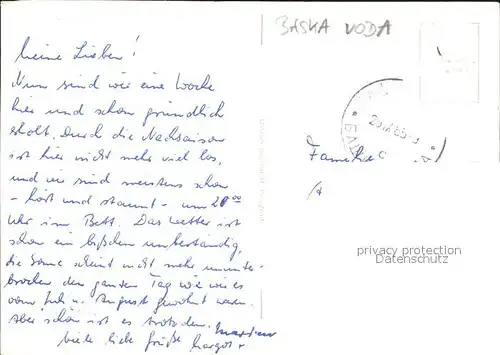 BASKA VODA
Meine Lieben!
Nun sind wir eine Woche
hier und schon gründlich
erholt. Durch die Nachsaison
ist hier nicht mehr viel los,
und wir sind meistens schon
- hört und staunt - um 20⁰⁰
Uhr im Bett. Das Wetter ist
schon ein bißchen unbeständig,
die Sonne scheint nicht mehr ununter-
brochen den ganzen Tag wie wir es
vom Juli u. August gewohnt waren.
Aber schön ist es trotzdem.
viele liebe Grüße Margot +
Familie
privacy protection
Datenschutz